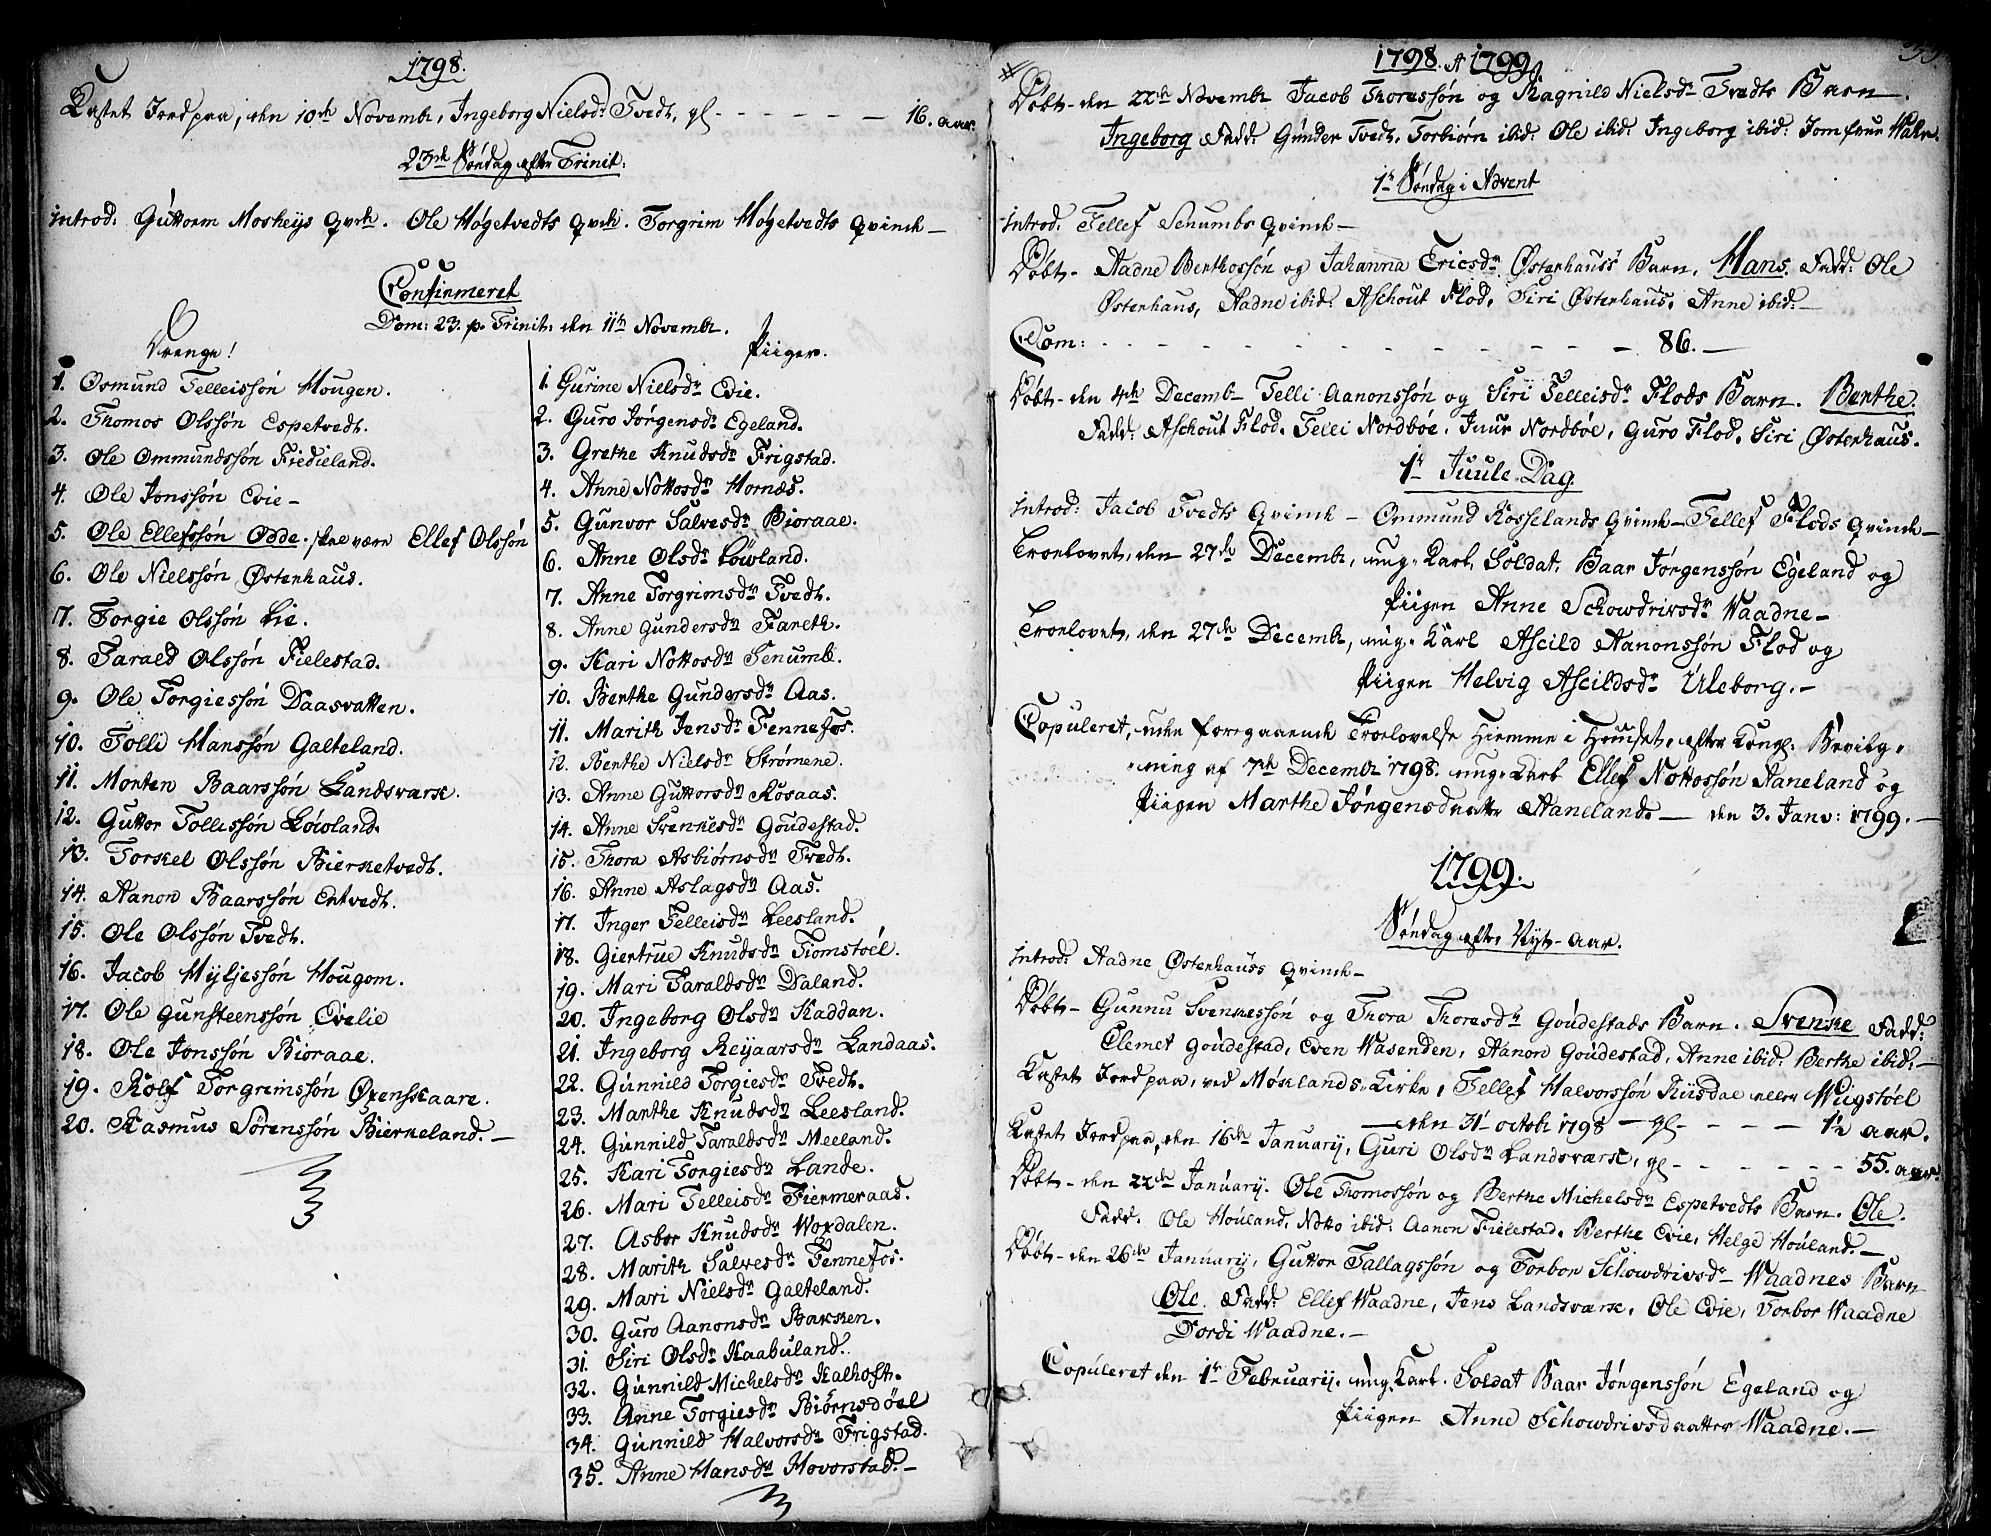 1798.
Kastet Jord paa, den 10de Novembr, Ingeborg Nielsdr Tvedt, gl - - - - - - 16. aar.
23de Søndag efter Trinit:
introd: Guttorm Moskeys Qvnde. Ole Høgetvedts Qvinde. Torgrim Høgetvedts Qvinde —
Confirmeret
Dom: 23. p. Trinit: den 11te Novembr.
Drenge!
1. Osmund Telleissøn Hougen.
2. Thomos Olssøn Espetvedt.
3. Ole Ommundssøn Fiedieland.
4. Ole Jonssøn Evie —
5. Ole Ellefssøn Odde. skal være Ellef Olssøn
6. Ole Nielssøn Østerhaus.
7. Torgie Olssøn Lie.
8. Tarald Olssøn Fielestad.
9. Ole Torgiessøn Daasvatten.
10. Tolli Hanssøn Galteland.
11. Morten Baarssøn Landsværk.
12. Guttor Tollissøn Løvland.
13. Torkel Olssøn Bierketvedt.
14. Aanon Baarssøn Entvedt.
15. Ole Olssøn Tvedt.
16. Jacob Hyljessøn Hougom.
17. Ole Gunsteenssøn Evelie
18. Ole Jonssøn Bioraae.
19. Rolf Torgremssøn Øxenskaare.
20. Rasmus Sørenssøn Bierkeland. —
Piiger.
1. Gurine Nielsdr Evie.
2. Guro Jørgensdr Egeland.
3. Grethe Knudsdr Frigstad.
4. Anne Nottosdr Hornæs.
5. Gunvor Salvesdr Bioraae.
6. Anne Olsdr Løwland.
7. Anne Torgrimsdr Tvedt.
8. Anne Gundersdr Fareth.
9. Kari Nottosdr Senumb.
10. Berthe Gundersdr Aas.
11. Marith Jensdr Fennefos.
12. Berthe Nielsdr Strømene.
13. Anne Guttorsdr Rosaas.
14. Anne Svenkesdr Goudestad.
15. Thora Asbiørnsdr Tvedt.
16. Anne Aslagsdr Aas.
17. Inger Telleisdr Leesland.
18. Giertrue Knudsdr Tiomstoel.
19. Mari Taraldsdr Daland.
20. Ingeborg Olsdr Kaddan.
21. Ingeborg Reijaarsdr Landaas.
22. Gunnild Torgiesdr Tvedt.
23. Marthe Knudsdr Leesland.
24. Gunnild Taraldsdr Meeland.
25. Kari Torgiesdr Lande.
26. Mari Telleisdr Fiermeraas.
27. Asbor Knudsdr Woxdalen.
28. Marith Salvesdr Fennefos.
29. Mari Nielsdr Galteland.
30. Guro Aanonsdr Bakken.
31. Siri Olsdr Kaabuland.
32. Gunnild Michelsdr Kalhoft.
33. Anne Torgiesdr Biørnsdøel
34. Gunnild Halvorsdr Frigstad.
35. Anne Hansdr Hovorstad. —
1798. A 1799.
Døbt - den 22de Novembr Jacob Thoressøn og Ragnild Nielsdr Tvedts Barn
Ingeborg Fadd: Gunder Tvedt, Torbiørn ibid: Ole ibid: Ingeborg ibid: Jomfrue
1te Søndag i Advent
introd. Tellef Senumbs Qvinde —
Døbt - Aadne Berthossøn og Johanna Ericsdr Østerhaus' Barn. Hans. Fadd: Ole
Østerhaus, Aadne ibid: Aschout Flod, Siri Østerhaus, Anne ibid: —
Com: - - - - - - - - - - 86. —
Døbt - den 4de Decemb - Telli Aanonssøn og Siri Telleisdr Flods Barn. Berthe.
Fadd: Aschout Flod. Telli Nordbøe, Juur Nordbøe, Guro Flod, Siri Østerhaus.
1te Juule-Dag.
introd: Jacob Tvedts Qvinde — Ommund Rosselands Qvinde — Tellef Flods Qvinde —
Troelovet, den 27de Decembr, ung-Karl, Soldat, Baar Jørgenssøn Egeland og
Piigen Anne Schowdrivsdr Waadne —
Troelovet, den 27de Decembr, ung-Karl Ascild Aanonssøn Flod og
Piigen Helvig Ascildsdr Uleborg. —
Copuleret, uden foregaaende Troelovelse Hiemme i Huuset, efter Kongl. Bevilg-
ning af 7de Decembr 1798. ung-Karl Ellef Nottossøn Aaneland og
Piigen Marthe Jørgensdaatter Aaneland. — den 3. Janv: 1799. —
1799.
Søndag efter Nyt-aar.
introd: Aadne Østerhauss Qvinde —
Døbt - Gunnu Svenkessøn og Thora Thoresdr Goudestads Barn. Svenke Fadd:
Clemet Goudestad, Even Wasenden, Aanon Goudestad, Anne ibid: Berthe ibid: —
Kastet Jord paa, ved Moslands-Kirke, Tellef Halvorssøn Riisdae eller Wiigstøel
den 31 octobr 1798 — gl - - - - 1½ aar.
Kastet Jord paa, den 16de Januarij, Guri Olsdr Landsværk, gl - - - - - 55. aar.
Døbt - den 22de Januarij. Ole Thomossøn og Berthe Michelsdr Espetvedts Barn. Ole.
Fadd. Ole Houland, Notto ibid: Aanon Fielestad, Berthe Evie, Helge Houland. —
Døbt - den 26de Januarij, Guttor Tallagssøn og Torbor Schowdrivsdr Waadnes Barn
Ole. Fadd: Ellef Waadne, Jens Landsværk, Ole Evie, Torbor Waadne
Dordi Waadne. —
Copuleret den 1te Februarij, ung Karl. Soldat Baar Jørgenssøn Egeland og
Piigen Anne Schowdrivsdaatter Waadne. —